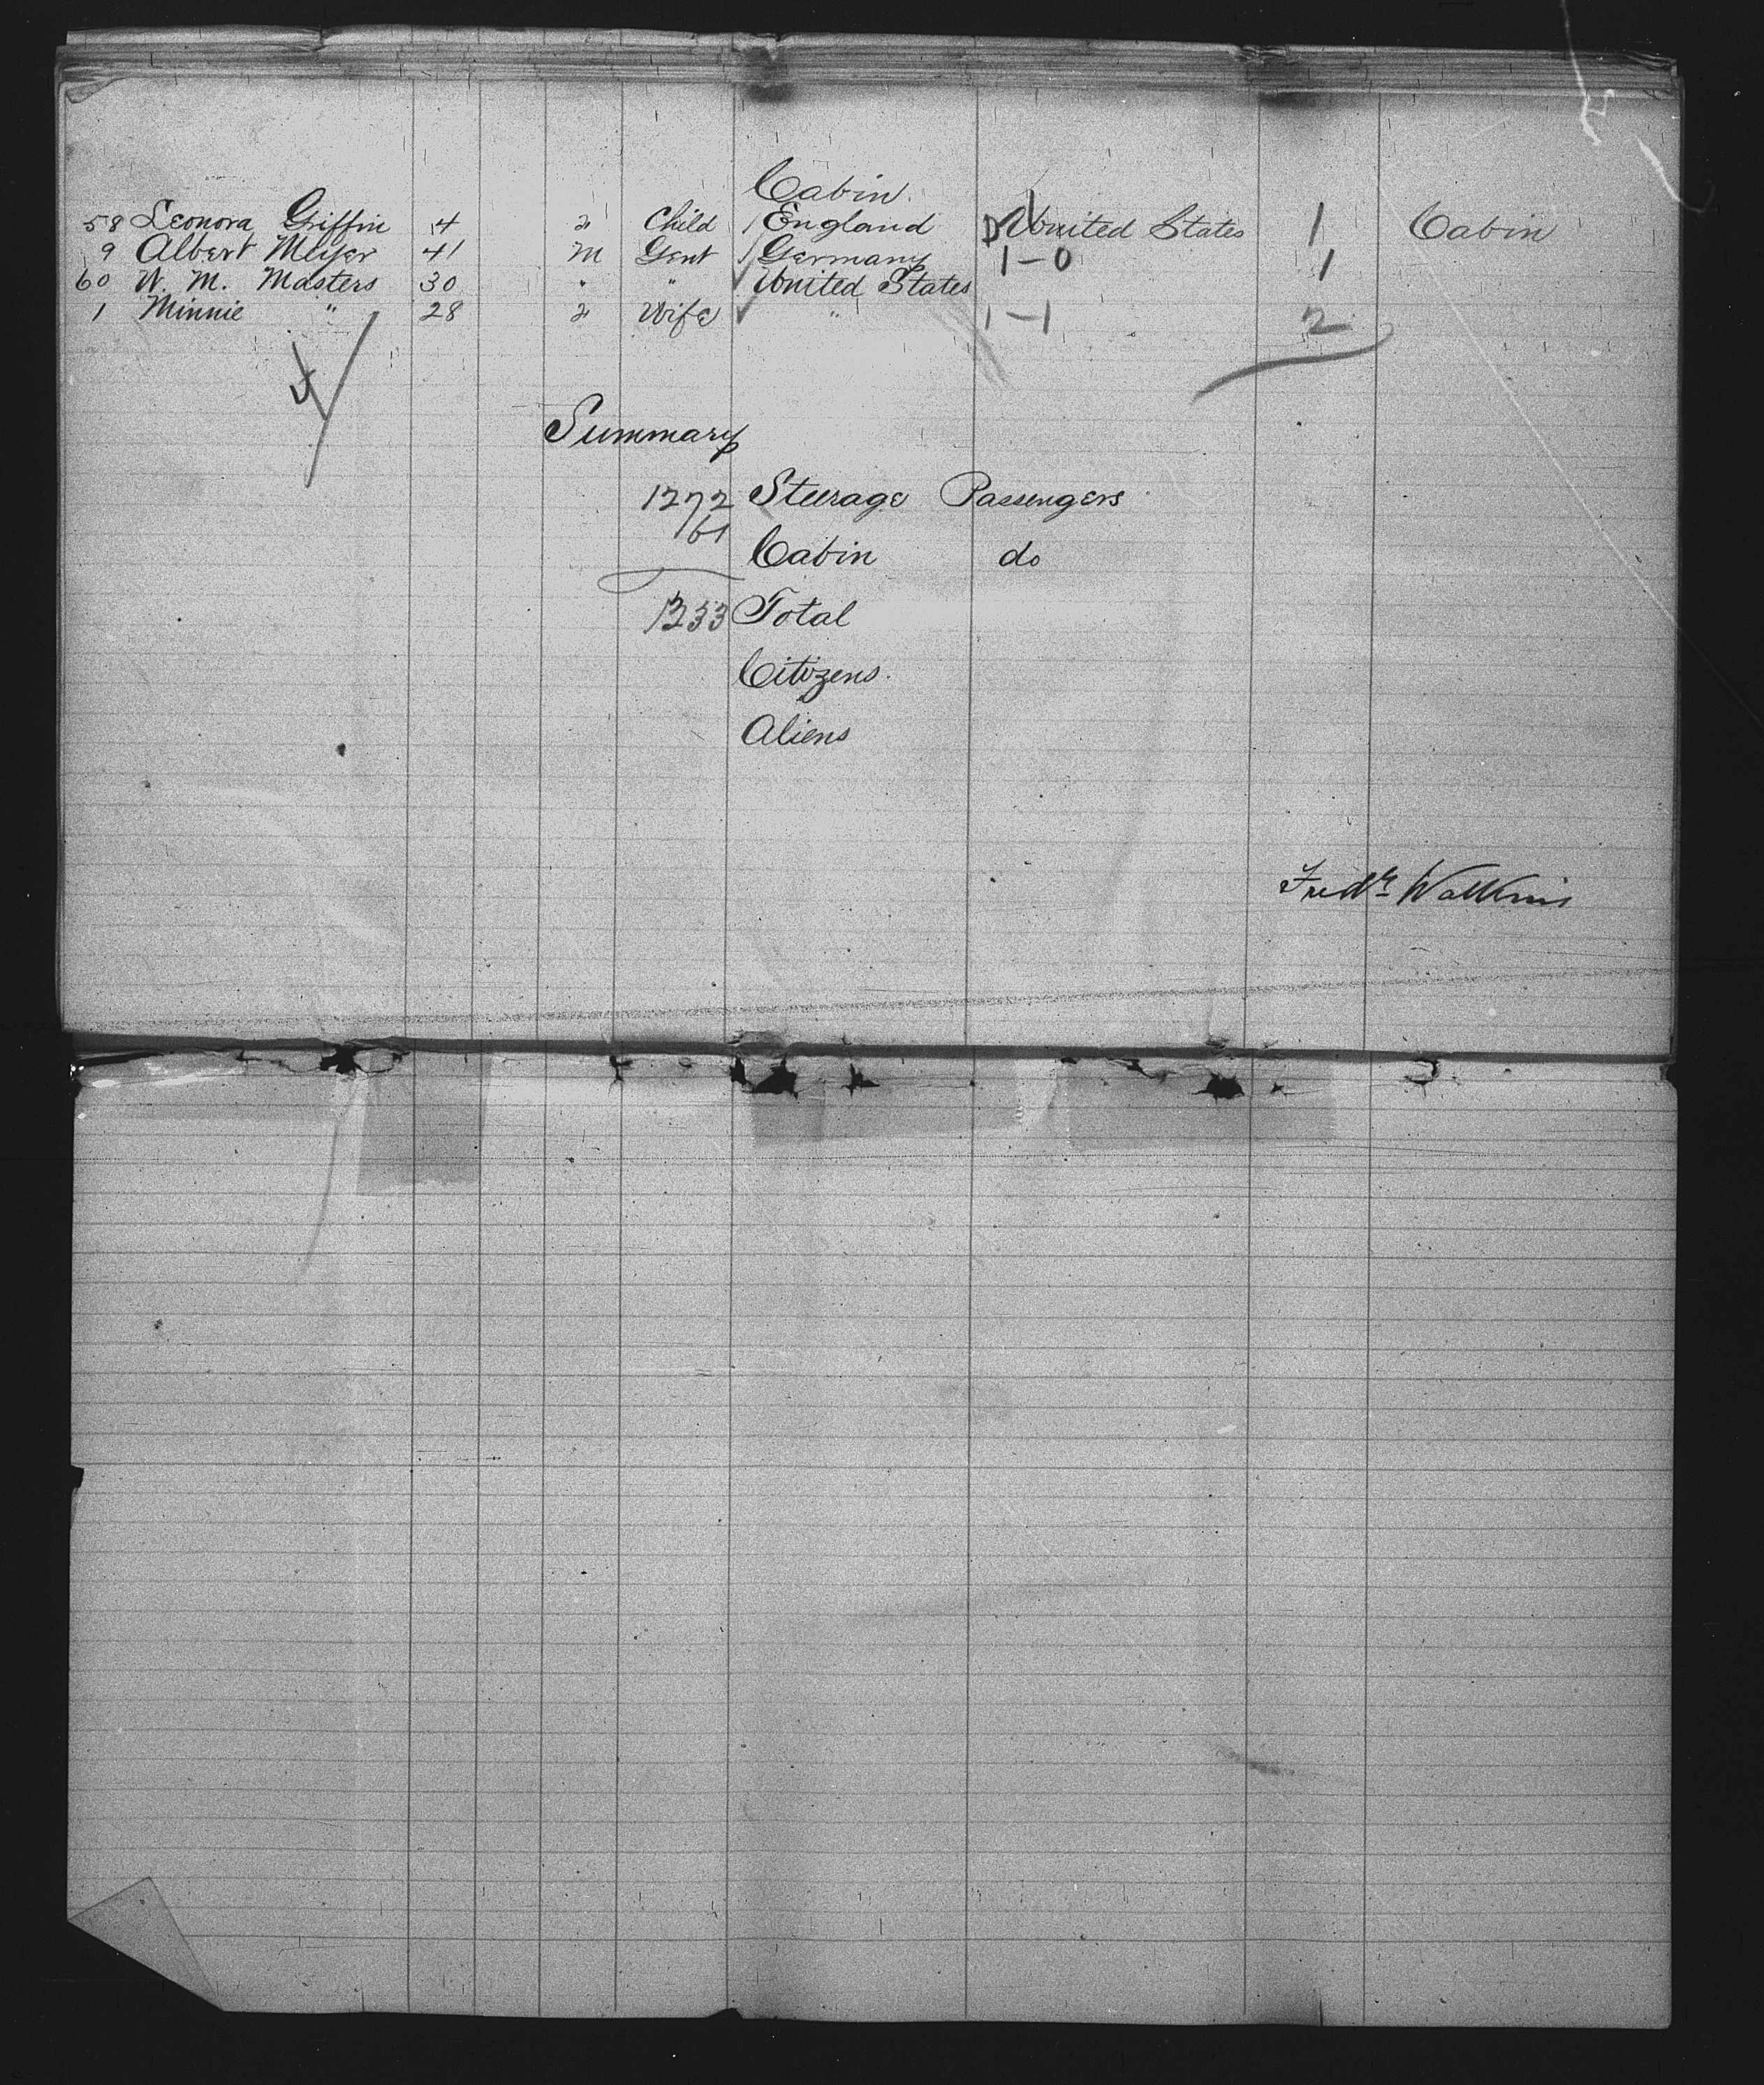 Cabin
58 Leonora Griffin 4 " Child England United States 1 Cabin
9 Albert Meyer 41 M Gent Germany 1-0 1
60 W. M. Masters 30 " " United States
1 Minnie " 28 " Wife " 1-1 2
Summary
1272 Steerage Passengers
61 Cabin do
1333 Total
Citizens.
Aliens
Fredk Watkins